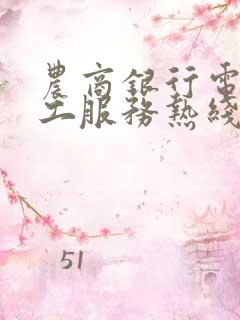 農商銀行電
工服務熱綫
51